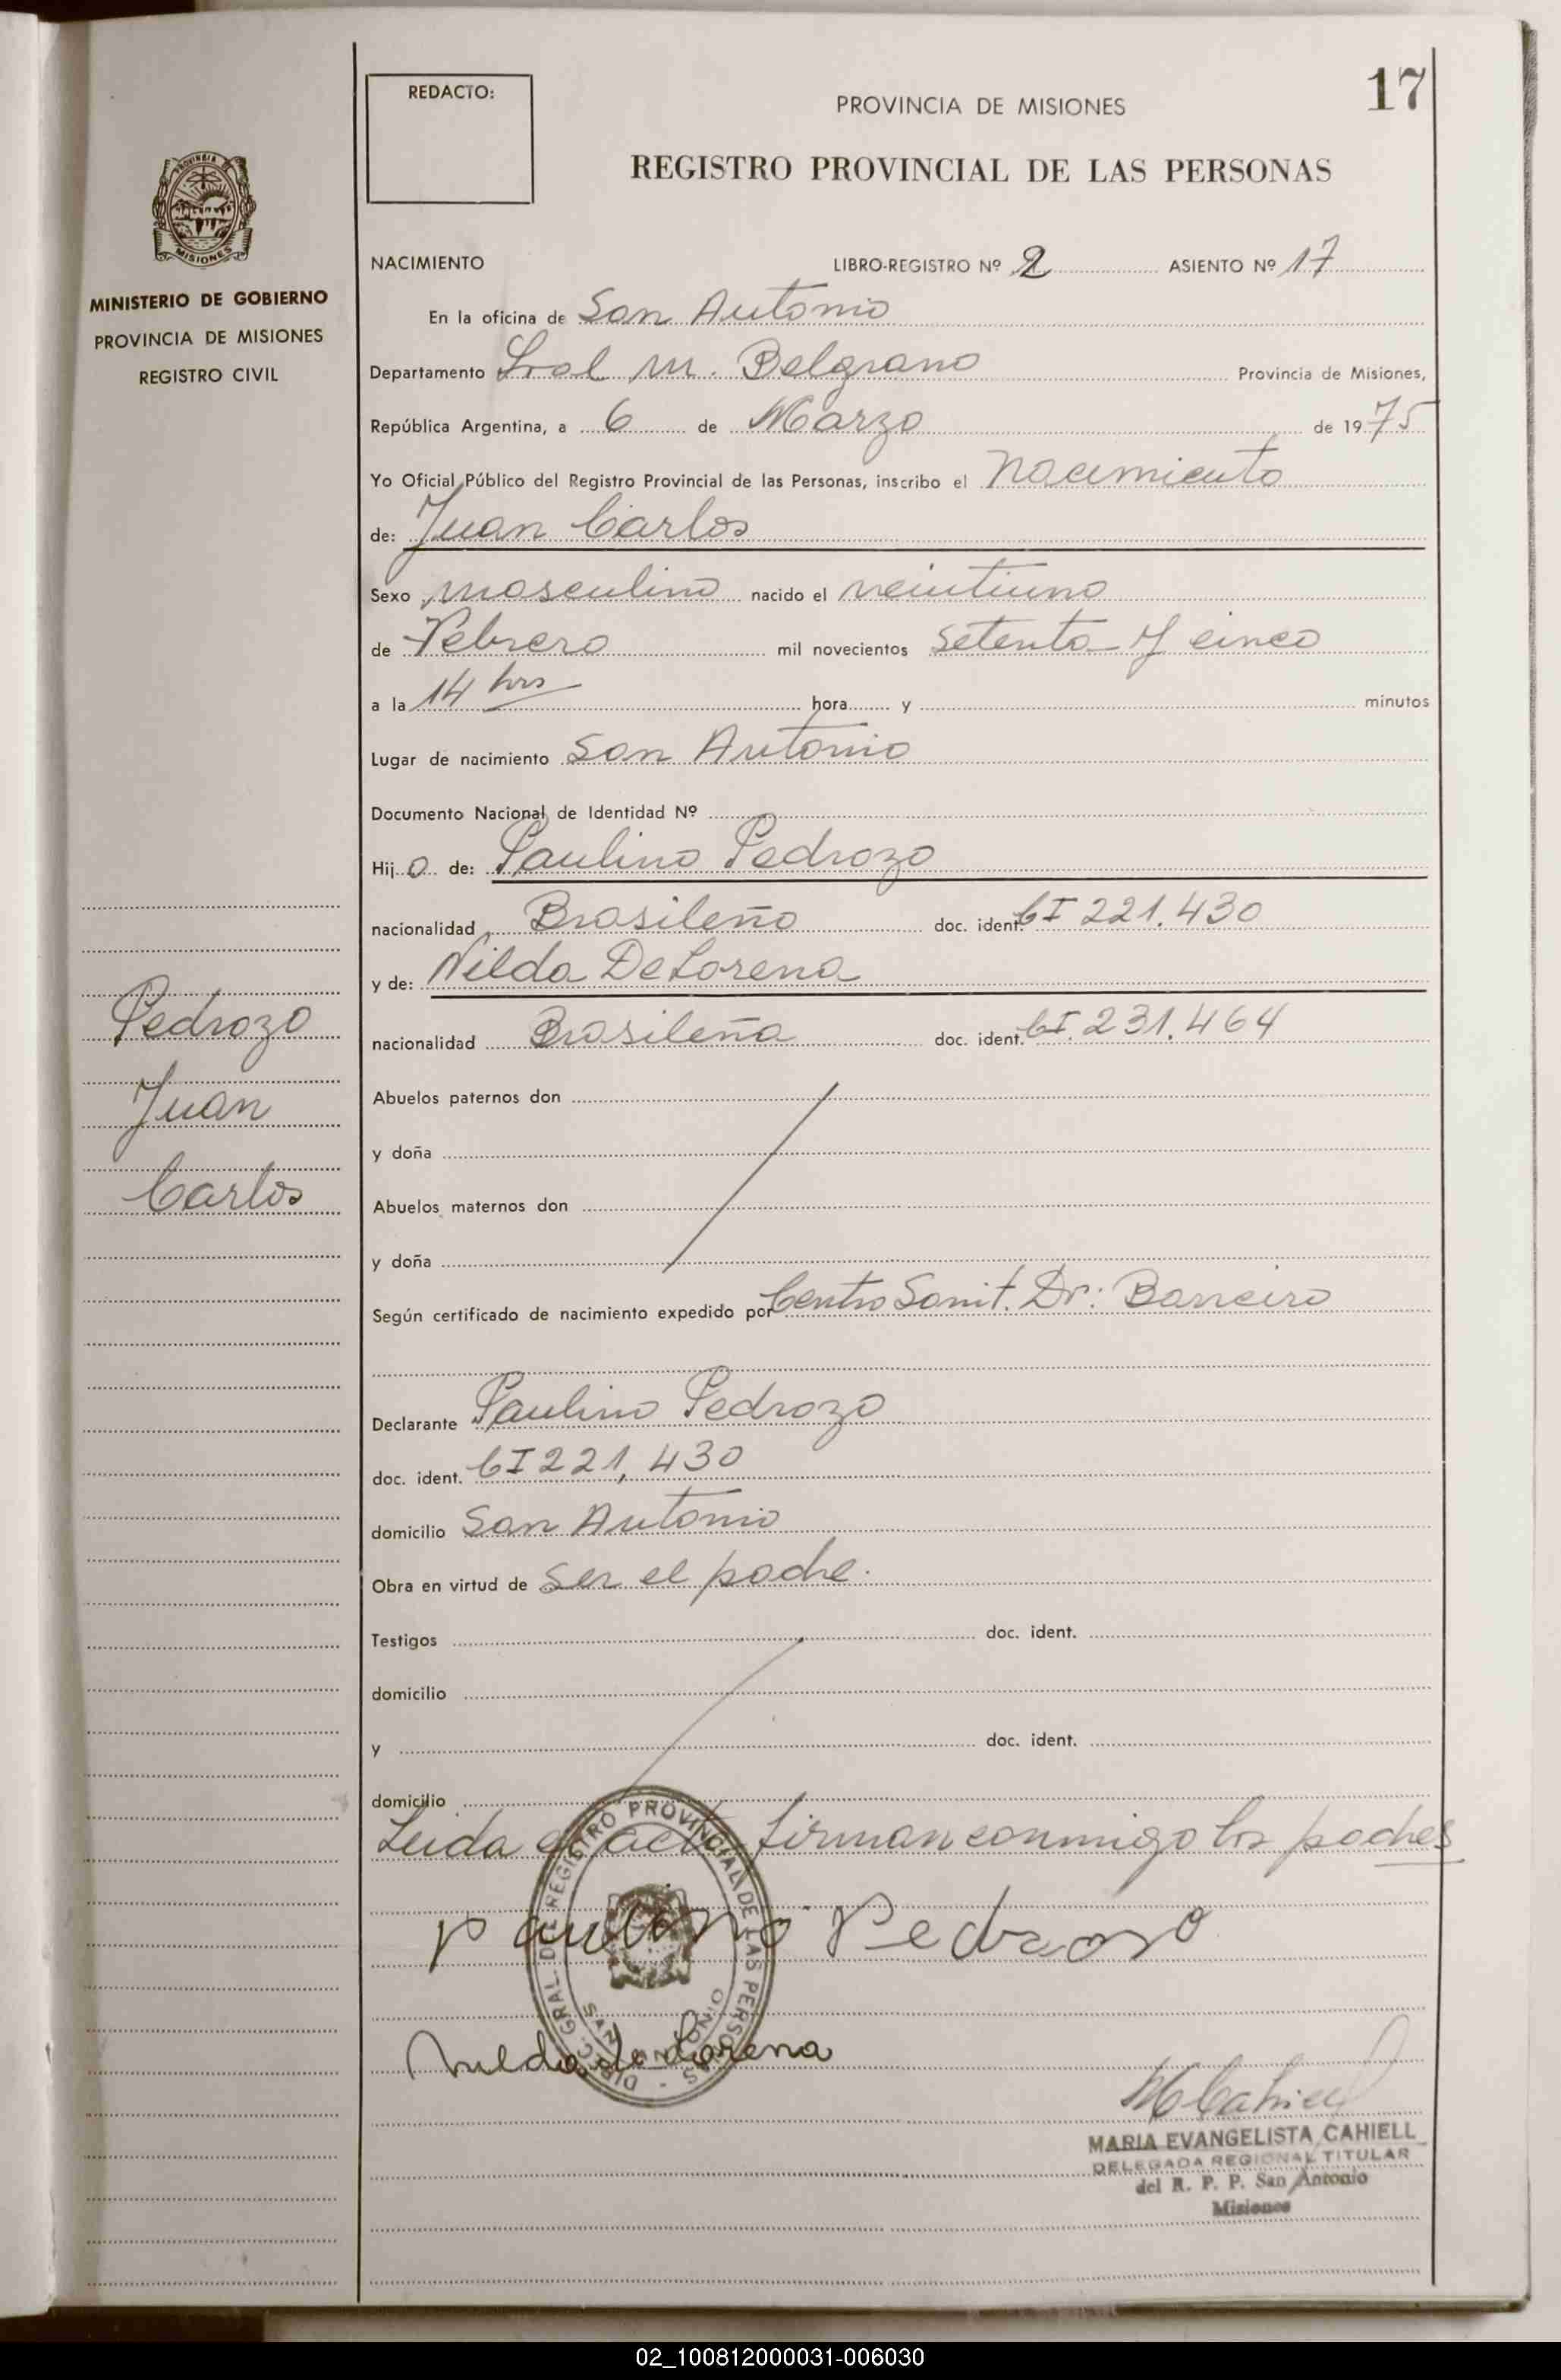 17
REDACTO:
PROVINCIA DE MISIONES
REGISTRO PROVINCIAL DE LAS PERSONAS
PROVINCIA MISIONES
MINISTERIO DE GOBIERNO
PROVINCIA DE MISIONES
REGISTRO CIVIL
Pedrozo
Juan
Carlos
NACIMIENTO LIBRO-REGISTRO Nº 2 ASIENTO Nº 17
En la oficina de San Antonio
Departamento Gral M. Belgrano Provincia de Misiones,
República Argentina, a 6 de Marzo de 1975
Yo Oficial Público del Registro Provincial de las Personas, inscribo el nacimiento
de: Juan Carlos
Sexo masculino nacido el veintiuno
de Febrero mil novecientos setenta y cinco
a la 14 hrs hora y minutos
Lugar de nacimiento San Antonio
Documento Nacional de Identidad Nº
Hijo de: Paulino Pedrozo
nacionalidad Brasileño doc. ident. CI 221.430
y de: Nilda De Lorena
nacionalidad Brasileña doc. ident. CI. 231.464
Abuelos paternos don
y doña
Abuelos maternos don
y doña
Según certificado de nacimiento expedido por Centro Sanit. Dr: Barreiro
Declarante Paulino Pedrozo
doc. ident. CI 221,430
domicilio San Antonio
Obra en virtud de ser el padre.
Testigos doc. ident.
domicilio
y doc. ident.
domicilio
Leida el acta firman conmigo los padres
DIREC. GRAL. DEL REGISTRO PROVINCIAL DE LAS PERSONAS -
SAN ANTONIO
paulino Pedrozo
Nilda de Lorena
M Cahiell
MARIA EVANGELISTA CAHIELL
DELEGADA REGIONAL TITULAR
del R. P. P. San Antonio
Misiones
02_100812000031-006030